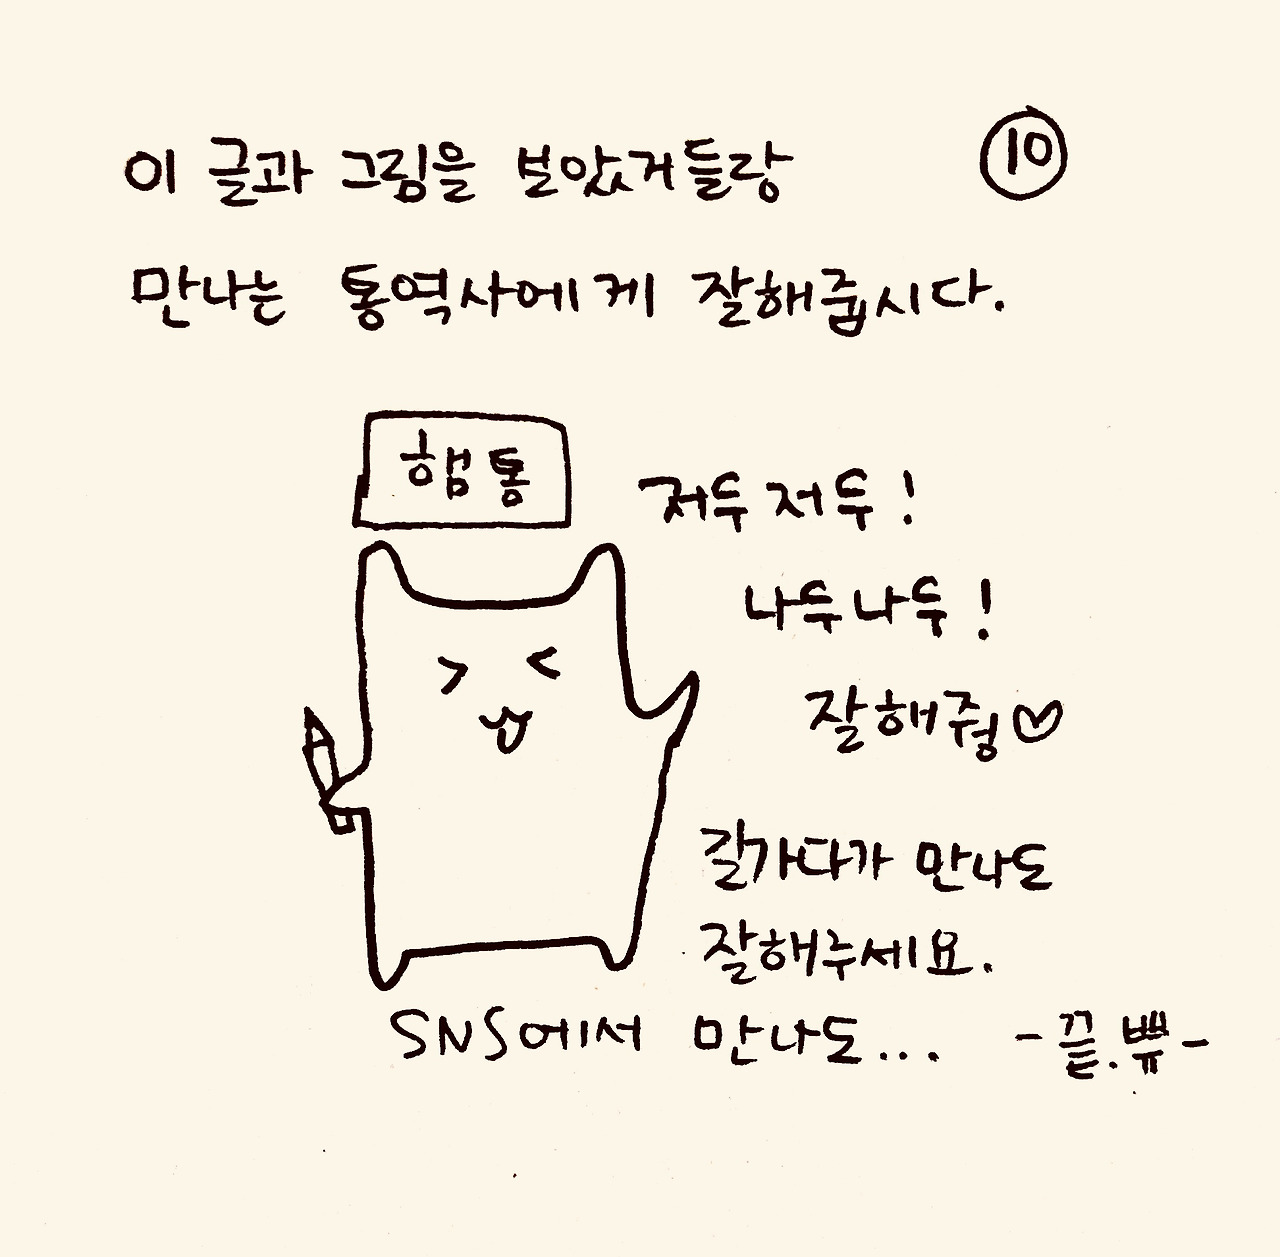 이 글과 그림을 보았거들랑
⑩
만나는 통역사에게 잘해줍시다.
햄통
저두 저두!
나두 나두!
잘해줭♡
길가다가 만나도
잘해주세요.
SNS에서 만나도...
-끝.쀼-